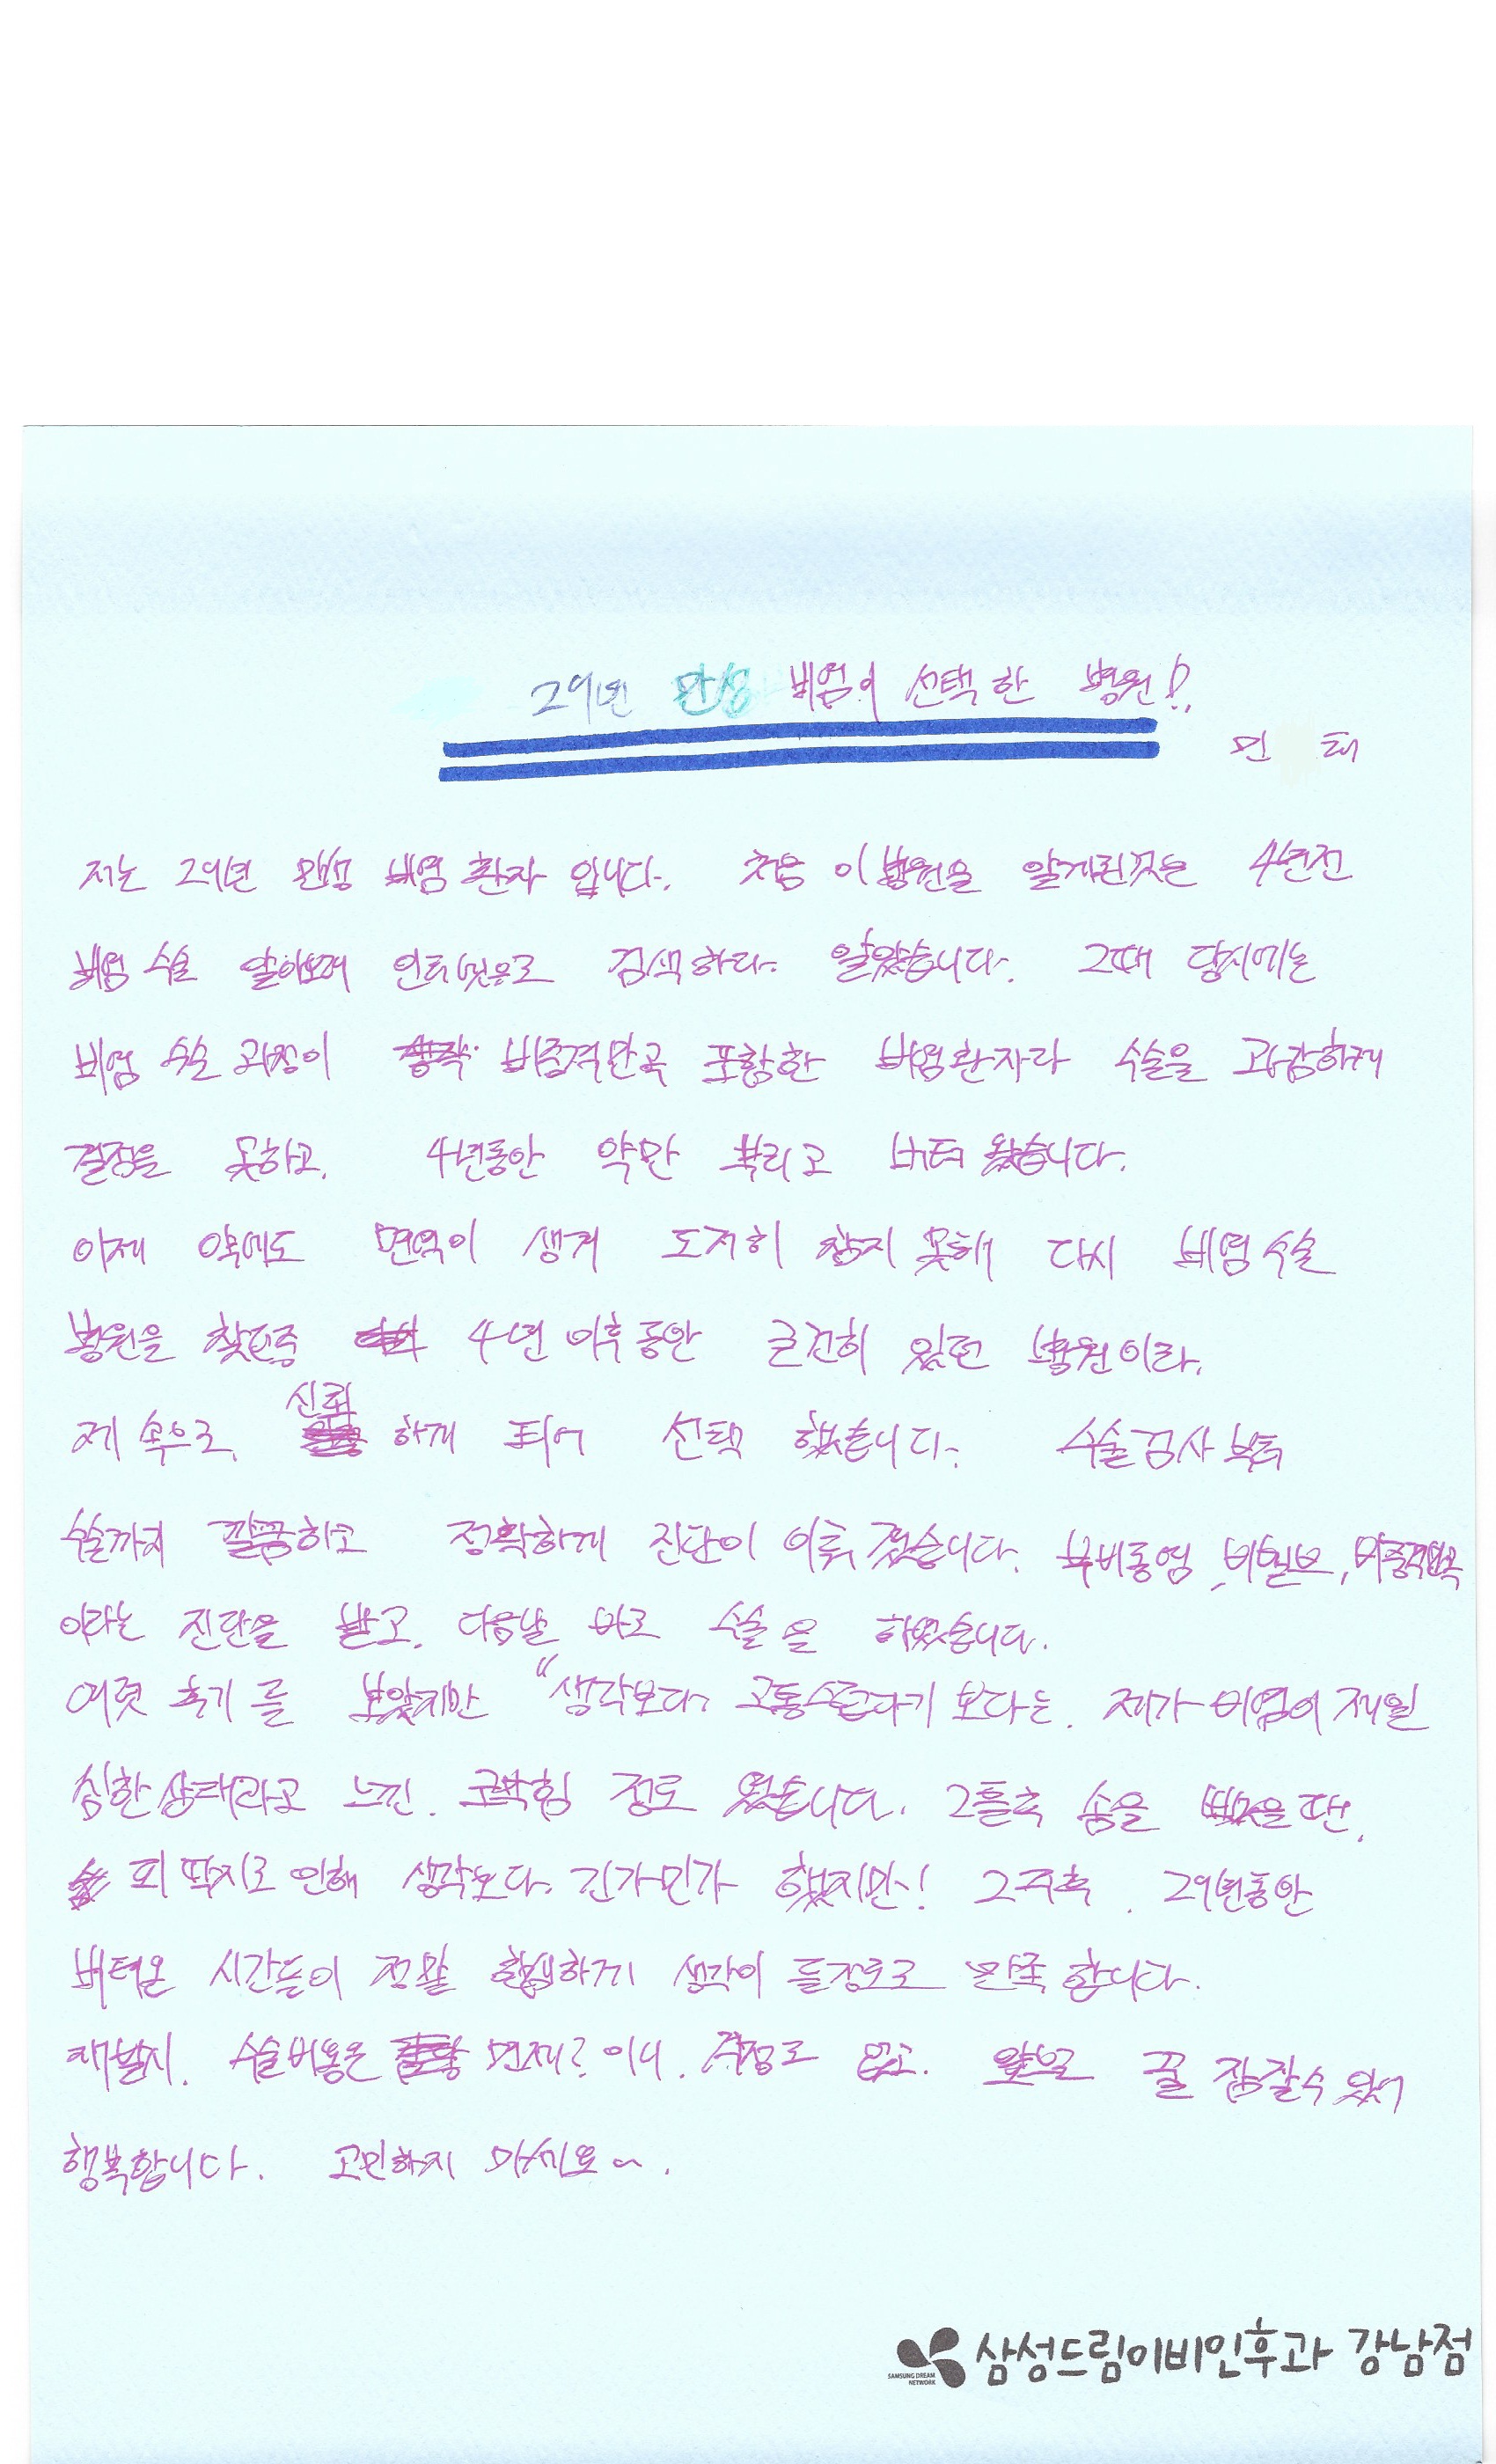 29년 만성 비염이 선택한 병원!!
민 태
저는 29년 만성 비염 환자 입니다. 처음 이병원을 알게된것은 4년전
비염 수술 알아보려 인터넷으로 검색하다 알았습니다. 그때 당시에는
비염 수술 과정이 비중격만곡 포함한 비염환자라 수술을 과감하게
결정을 못하고. 4년동안 약만 뿌리고 버텨 왔습니다.
이제 약에도 면역이 생겨 도저히 참지 못해 다시 비염수술
병원을 찾던중 4년 이후동안 굳건히 있던 병원이라.
제 속으로. 신뢰 하게 되어 선택 했습니다. 수술검사 부터
수술까지 깔끔하고 정확하게 진단이 이뤄 졌습니다. 부비동염, 비밸브, 비중격만곡
이라는 진단을 받고. 다음날 바로 수술을 하였습니다.
여럿 후기를 보았지만 "생각보다 고통스럽다기 보다는. 제가 비염이 제일
심한상태라고 느낀. 코막힘 정도 였습니다. 2틀후 솜을 뺐을땐.
피 딱지로 인해 생각보다. 긴가민가 했지만! 2주후. 29년동안
버텨온 시간들이 정말 한심하게 생각이 들정도로 만족합니다.
재발시. 수술비용은 면제? 이니. 걱정도 없고. 앞으로 꿀 잠잘수 있어
행복합니다. 고민하지 마세요~.
SAMSUNG DREAM NETWORK 삼성드림이비인후과 강남점